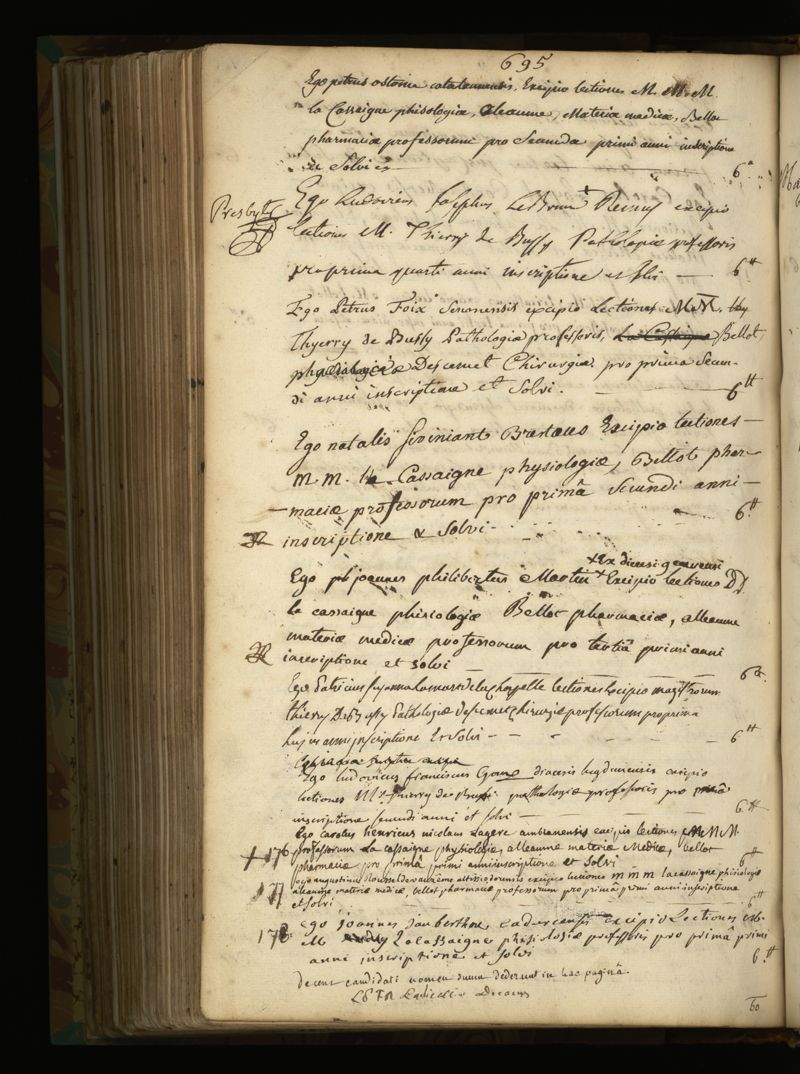 695
Ego petrus ostome catalaunensis, Excipio lectiones M. M. M.
la Cassaigne phisologiæ, alleaume, Materiæ medicæ, Bellot
pharmaciæ professorum pro Secunda primi anni inscriptione
et Solvi 6"
Presbyter
Ego Ludovicus Josephus LeBrun + Remus excipio
lectiones M. Thierry de Bussy Pathologiæ professoris
pro prima quarti anni inscriptione et solvi — 6tt
Ego Petrus Foix Senonensis excipio Lectiones M M.
Thyerry de Bussy Pathologiæ professoris, La Cassaigne Bellot,
Descemet Chirurgiæ pro prima Secun-
di anni inscriptione et Solvi. — 6tt
Ego natalis Excipio lectiones —
m. m. la Cassaigne physiologiæ, Bellot phar-
maciæ professorum pro primâ secundi anni —
inscriptione & Solvi - 6tt
+ Ex
Ego joannes philibertus Martin + Excipio lectiones DD.
la cassaigne phisiologiæ Bellot pharmaciæ, alleaume
materiæ medicæ professorum pro tertiâ primi anni
inscriptione et solvi — 6tt
Ego Patricius delachapelle lectiones Excipio magistrorum
thierry De Bussy Pathologiæ descemet chirurgiæ professorum pro prima
hujus anni inscriptione Et Solvi - 6tt
Ego ludovicus franciscus diocesis lugdunensis excipio
lectiones Mri thierry de Bussi pathologiæ professoris pro primâ
inscriptione secundi anni et solvi — 6tt
Ego Carolus henricus nicolaus Lagere ambianensis excipio lectiones M M M
176 professorum La cassaigne physiologiæ, alleaume materiæ Medicæ, bellot
pharmaciæ pro primâ primi anni inscriptione et Solvi 6tt
ego augustinus excipio lectiones m m m lacassaigne phisiologiæ
177 alleaume materiæ medicæ bellot pharmaciæ professorum pro primâ primi anni inscriptione
et solvi 6tt
ego joannes cadurcensis excipio Lectiones
178 M Lacassaigne phisiologiæ professoris pro primâ primi
anni inscriptione et solvi 6tt
Decem candidati nomen suum dederunt in hac paginâ.
Decanus
60